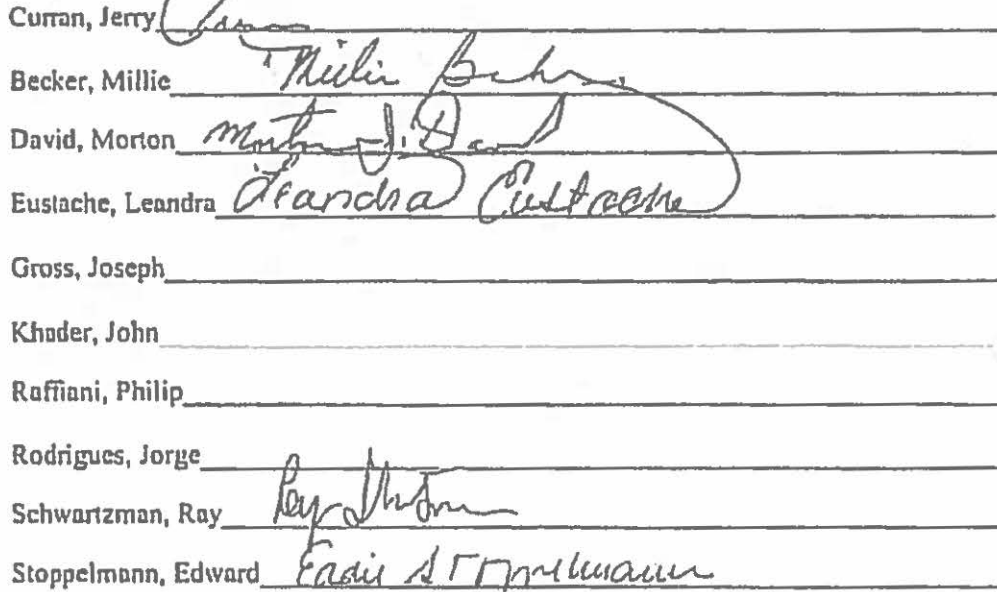 Curran, Jerry
Becker, Millie Millie
David, Morton Morton J. David
Eustache, Leandra Leandra Eustache
Gross, Joseph
Khader, John
Raffiani, Philip
Rodrigues, Jorge
Schwartzman, Ray Ray
Stoppelmann, Edward Eadie Stoppelmann